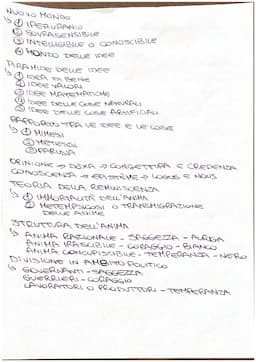 NUOVO MONDO
↳ ① IPERURANIO
② SOVRASENSIBILE
③ INTELLIGIBILE O CONOSCIBILE
④ MONDO DELLE IDEE
PIRAMIDE DELLE IDEE
↳ ① IDEA DI BENE
② IDEE VALORI
③ IDEE MATEMATICHE
④ IDEE DELLE COSE NATURALI
⑤ IDEE DELLE COSE ARTIFICIALI
RAPPORTO TRA LE IDEE E LE COSE
↳ ① MIMESI
② METESSI
③ PARUSIA
OPINIONE → DOXA → CONGETTURA E CREDENZA
CONOSCENZA → EPISTÈME → LOGOS E NOUS
TEORIA DELLA REMINISCENZA
↳ ① IMMORTALITÀ DELL'ANIMA
② METEMPSICOSI O TRASMIGRAZIONE
DELLE ANIME
STRUTTURA DELL'ANIMA
↳ ANIMA RAZIONALE - SAGGEZZA - AURIGA
ANIMA IRASCIBILE - CORAGGIO - BIANCO
ANIMA CONCUPISCIBILE - TEMPERANZA - NERO
DIVISIONE IN AMBITO POLITICO
↳ GOVERNANTI - SAGGEZZA
GUERRIERI - CORAGGIO
LAVORATORI O PRODUTTORI - TEMPERANZA